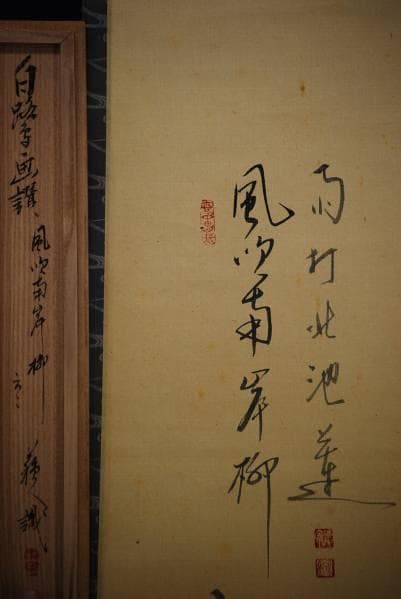 風吹南岸柳
雨打北池蓮
白鷺画讃 風吹南岸柳 云々
識